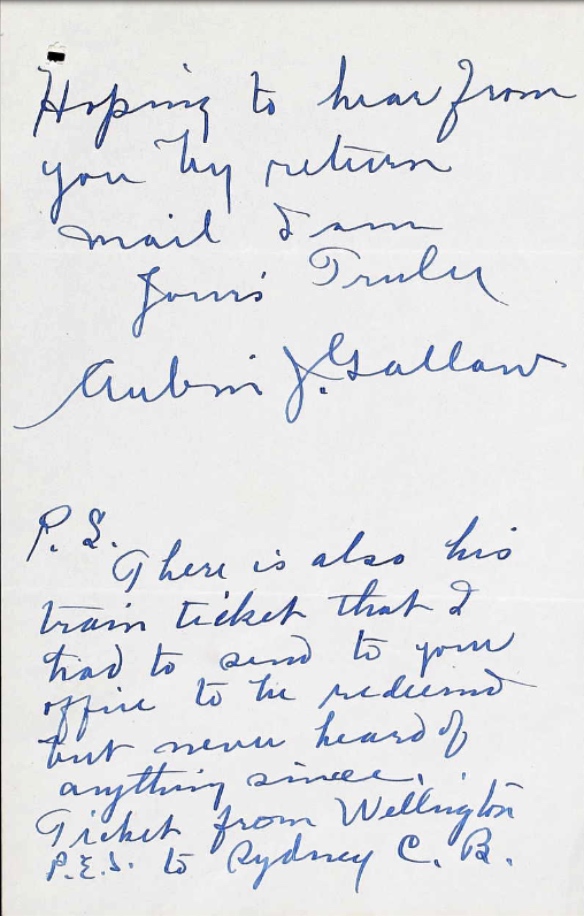 Hoping to hear from
you by return
mail I am
Yours Truly
Aubin J. Gallant
P.S.
There is also his
train ticket that I
had to send to your
office to be redeemed
but never heard of
anything since.
Ticket from Wellington
P.E.I. to Sydney C. B.